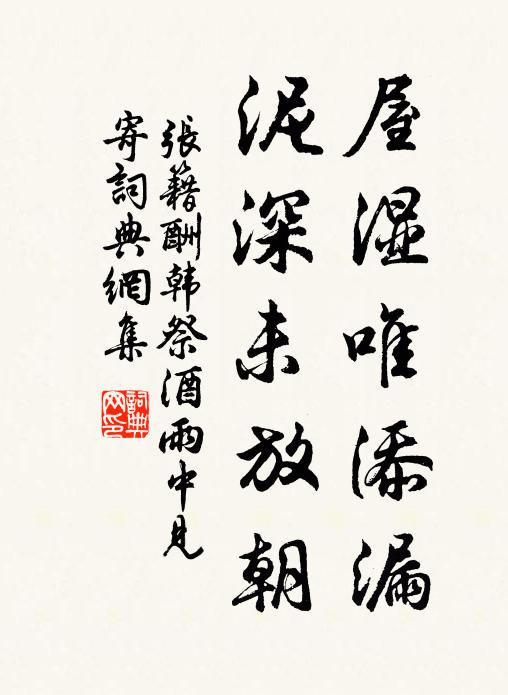 屋湿唯添漏
泥深未放朝
張籍酬韩祭酒雨中見
寄詞典網集
詞典网印